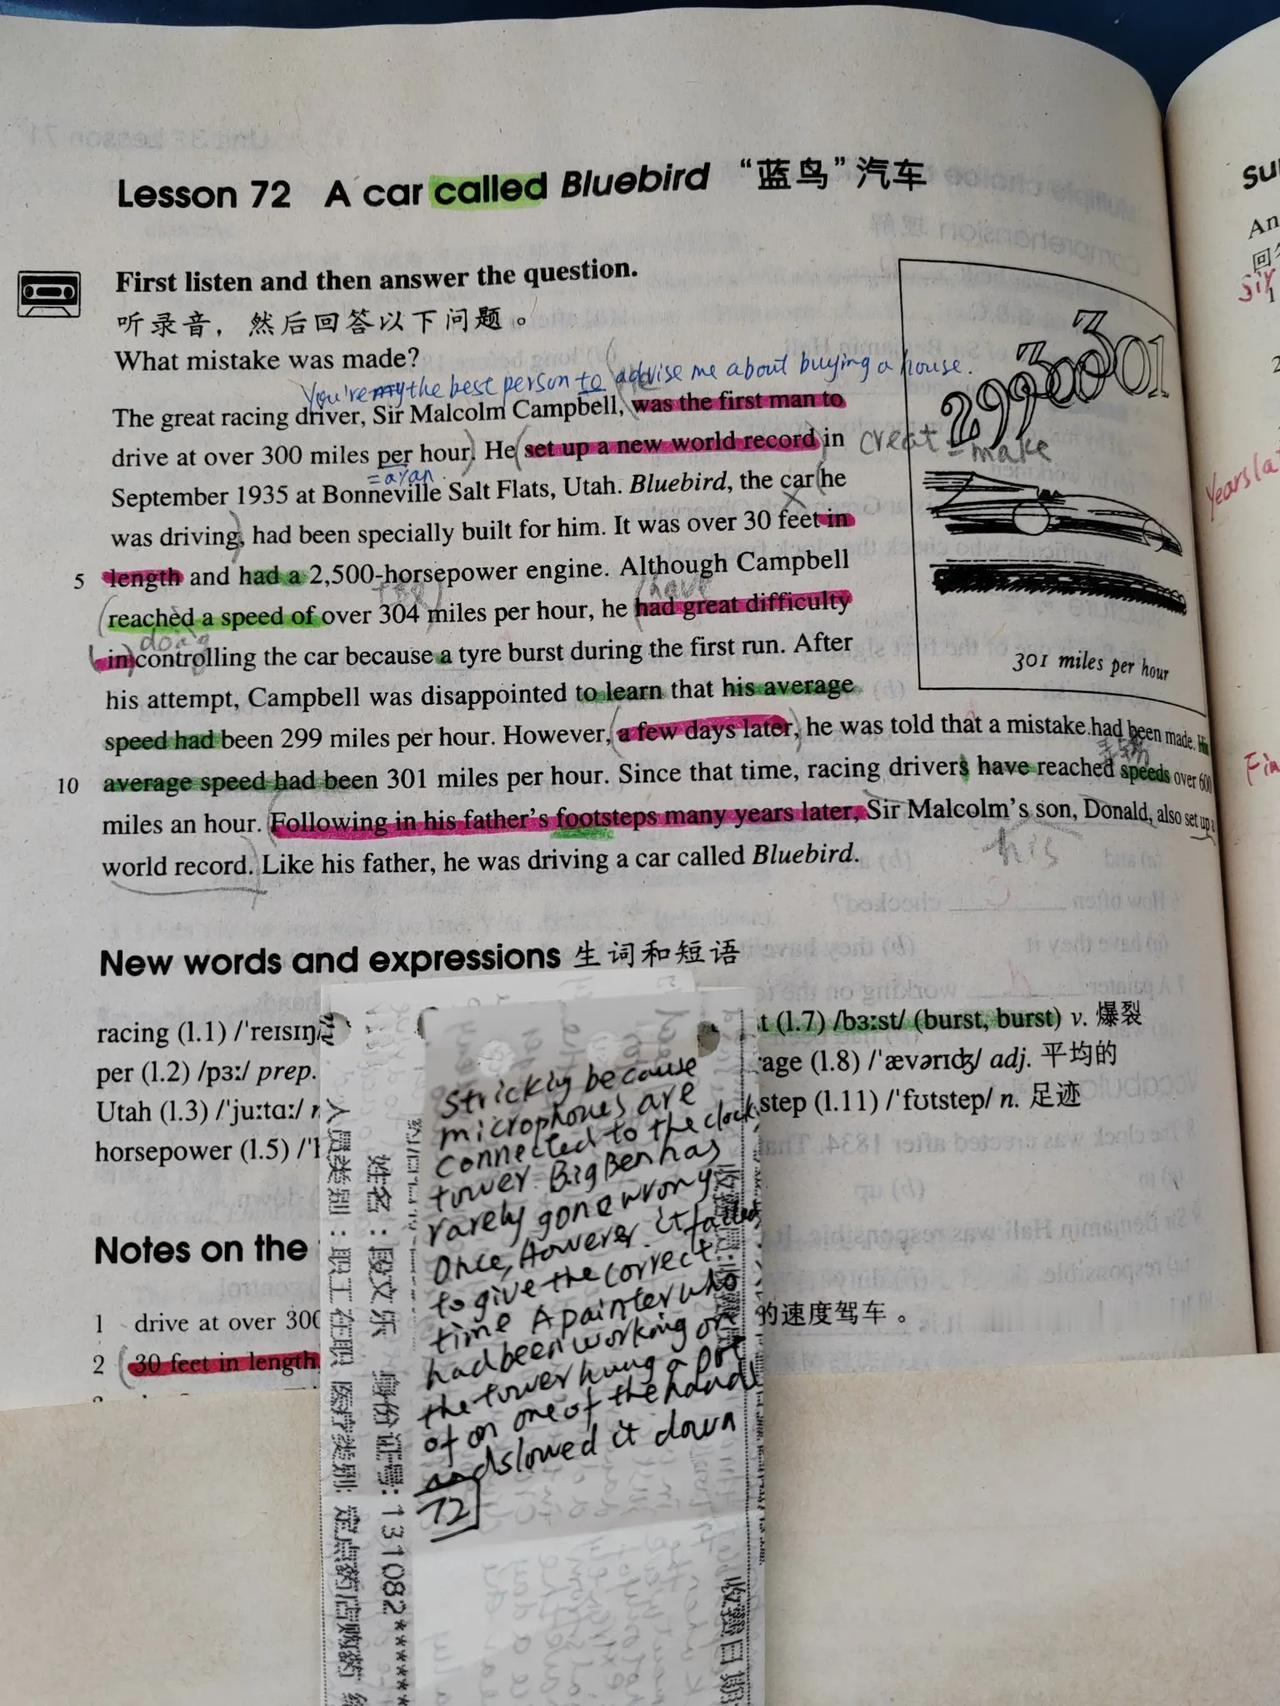 Lesson 72 A car called Bluebird “蓝鸟”汽车
First listen and then answer the question.
听录音，然后回答以下问题。
What mistake was made?
You're the best person to advise me about buying a house.
The great racing driver, Sir Malcolm Campbell, was the first man to
drive at over 300 miles per hour. He set up a new world record in
creat = make
= a/an
September 1935 at Bonneville Salt Flats, Utah. Bluebird, the car he
was driving, had been specially built for him. It was over 30 feet in
5 length and had a 2,500-horsepower engine. Although Campbell
have
reached a speed of over 304 miles per hour, he had great difficulty
doing
in controlling the car because a tyre burst during the first run. After
his attempt, Campbell was disappointed to learn that his average
speed had been 299 miles per hour. However, a few days later, he was told that a mistake had been made. His
10 average speed had been 301 miles per hour. Since that time, racing drivers have reached speeds over 600
miles an hour. Following in his father's footsteps many years later, Sir Malcolm's son, Donald, also set up a
his
world record. Like his father, he was driving a car called Bluebird.
299 300 301
301 miles per hour
New words and expressions 生词和短语
racing (l.1) /ˈreɪsɪŋ/
per (l.2) /pɜː/ prep.
Utah (l.3) /ˈjuːtɑː/
horsepower (l.5)
t (l.7) /bɜːst/ (burst, burst) v. 爆裂
rage (l.8) /ˈævərɪdʒ/ adj. 平均的
step (l.11) /ˈfʊtstep/ n. 足迹
Notes on the
1 drive at over 300
的速度驾车。
2 30 feet in length
Strickly because
microphones are
connected to the clock
tower. Big Ben has
rarely gone wrony
Once, However. it failed
to give the correct
time A painter who
had been working on
the tower hung a pot
of on one of the hands
and slowed it down
72
人员类别：职工在职 医疗类别: 定点药店购药
姓名：段文乐 身份证号: 131082******
收费日期
Su
An
回
Six
1
2
Years la
Fin